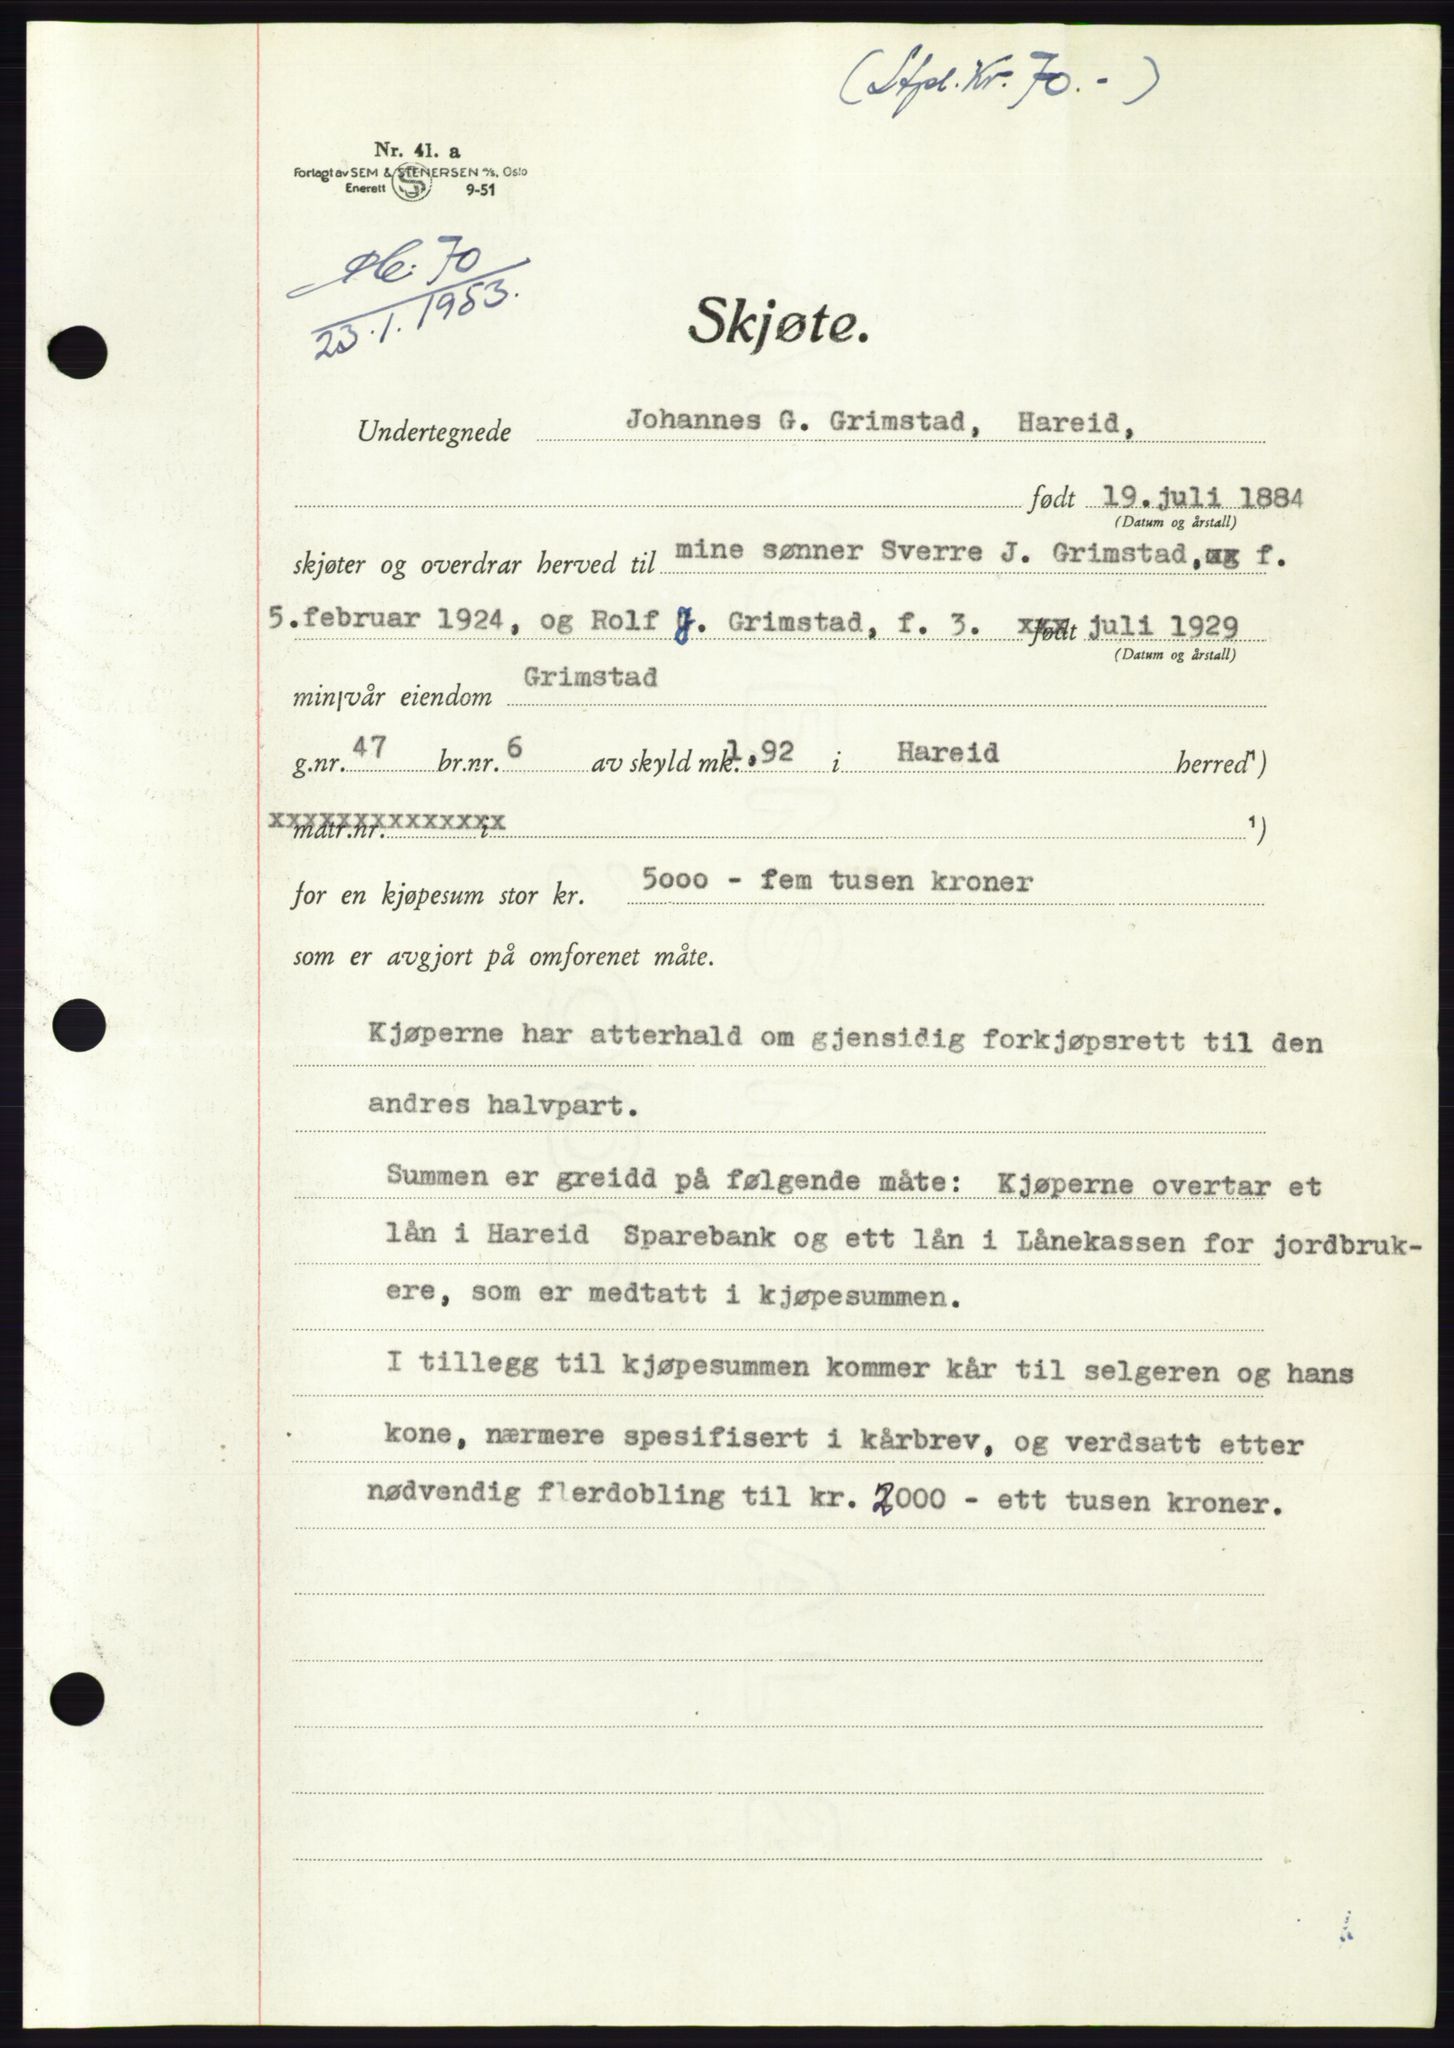 (Stpl. Kr. 70.-)
Nr. 41. a
Forlagt av SEM & STENERSEN A/S, Oslo
Enerett S 9-51
70
23.1.1953.
Skjøte.
Undertegnede Johannes G. Grimstad, Hareid,
født 19. juli 1884
(Datum og årstall)
skjøter og overdrar herved til mine sønner Sverre J. Grimstad, f.
5.februar 1924, og Rolf J. Grimstad, f. 3. xxx født juli 1929
(Datum og årstall)
min/vår eiendom Grimstad
g.nr. 47 br.nr. 6 av skyld mk. 1,92 i Hareid herred 1)
xxxxxxxxxxxxxxx matr.nr. i 1)
for en kjøpesum stor kr. 5000 - fem tusen kroner
som er avgjort på omforenet måte.
Kjøperne har atterhald om gjensidig forkjøpsrett til den
andres halvpart.
Summen er greidd på følgende måte: Kjøperne overtar et
lån i Hareid Sparebank og ett lån i Lånekassen for jordbruk-
ere, som er medtatt i kjøpesummen.
I tillegg til kjøpesummen kommer kår til selgeren og hans
kone, nærmere spesifisert i kårbrev, og verdsatt etter
nødvendig flerdobling til kr. 2000 - ett tusen kroner.